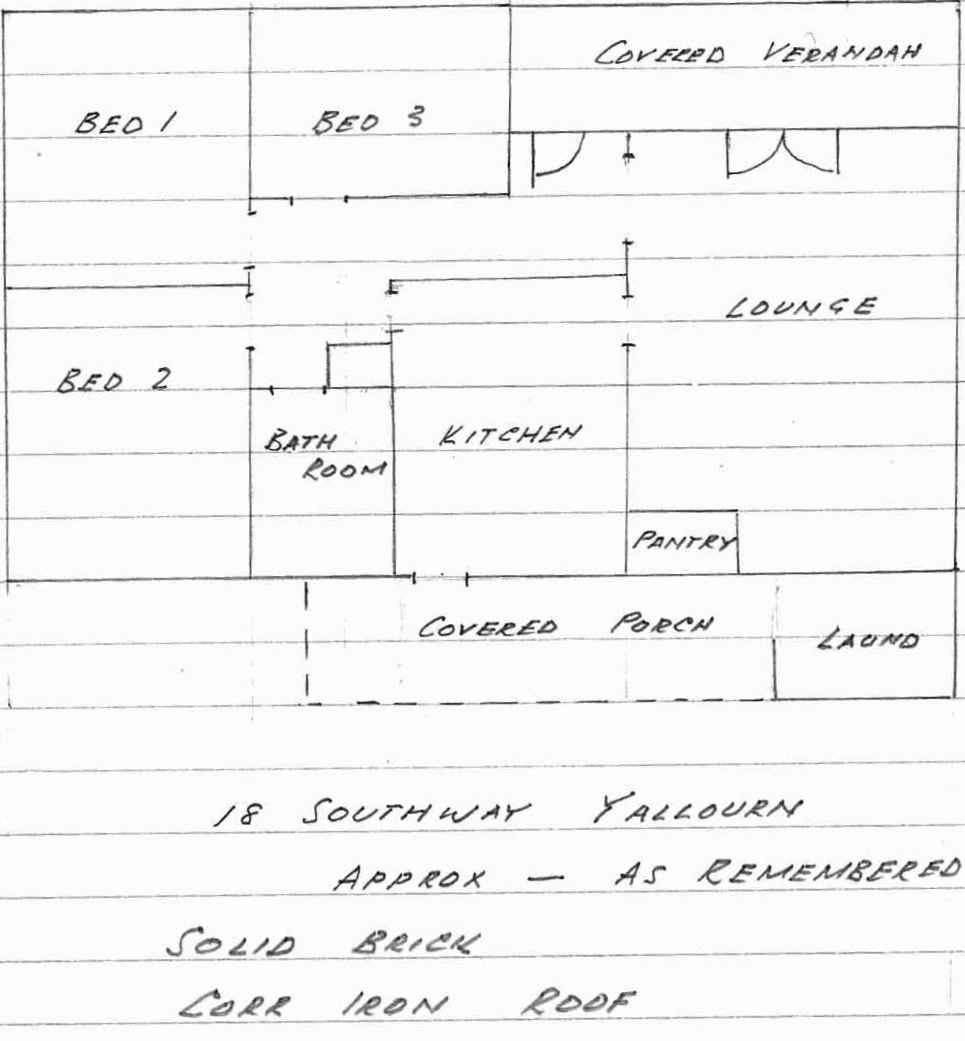 COVERED VERANDAH
BED 1
BED 3
LOUNGE
BED 2
BATH
ROOM
KITCHEN
PANTRY
COVERED PORCH
LAUND
18 SOUTHWAY YALLOURN
APPROX — AS REMEMBERED
SOLID BRICK
CORR IRON ROOF